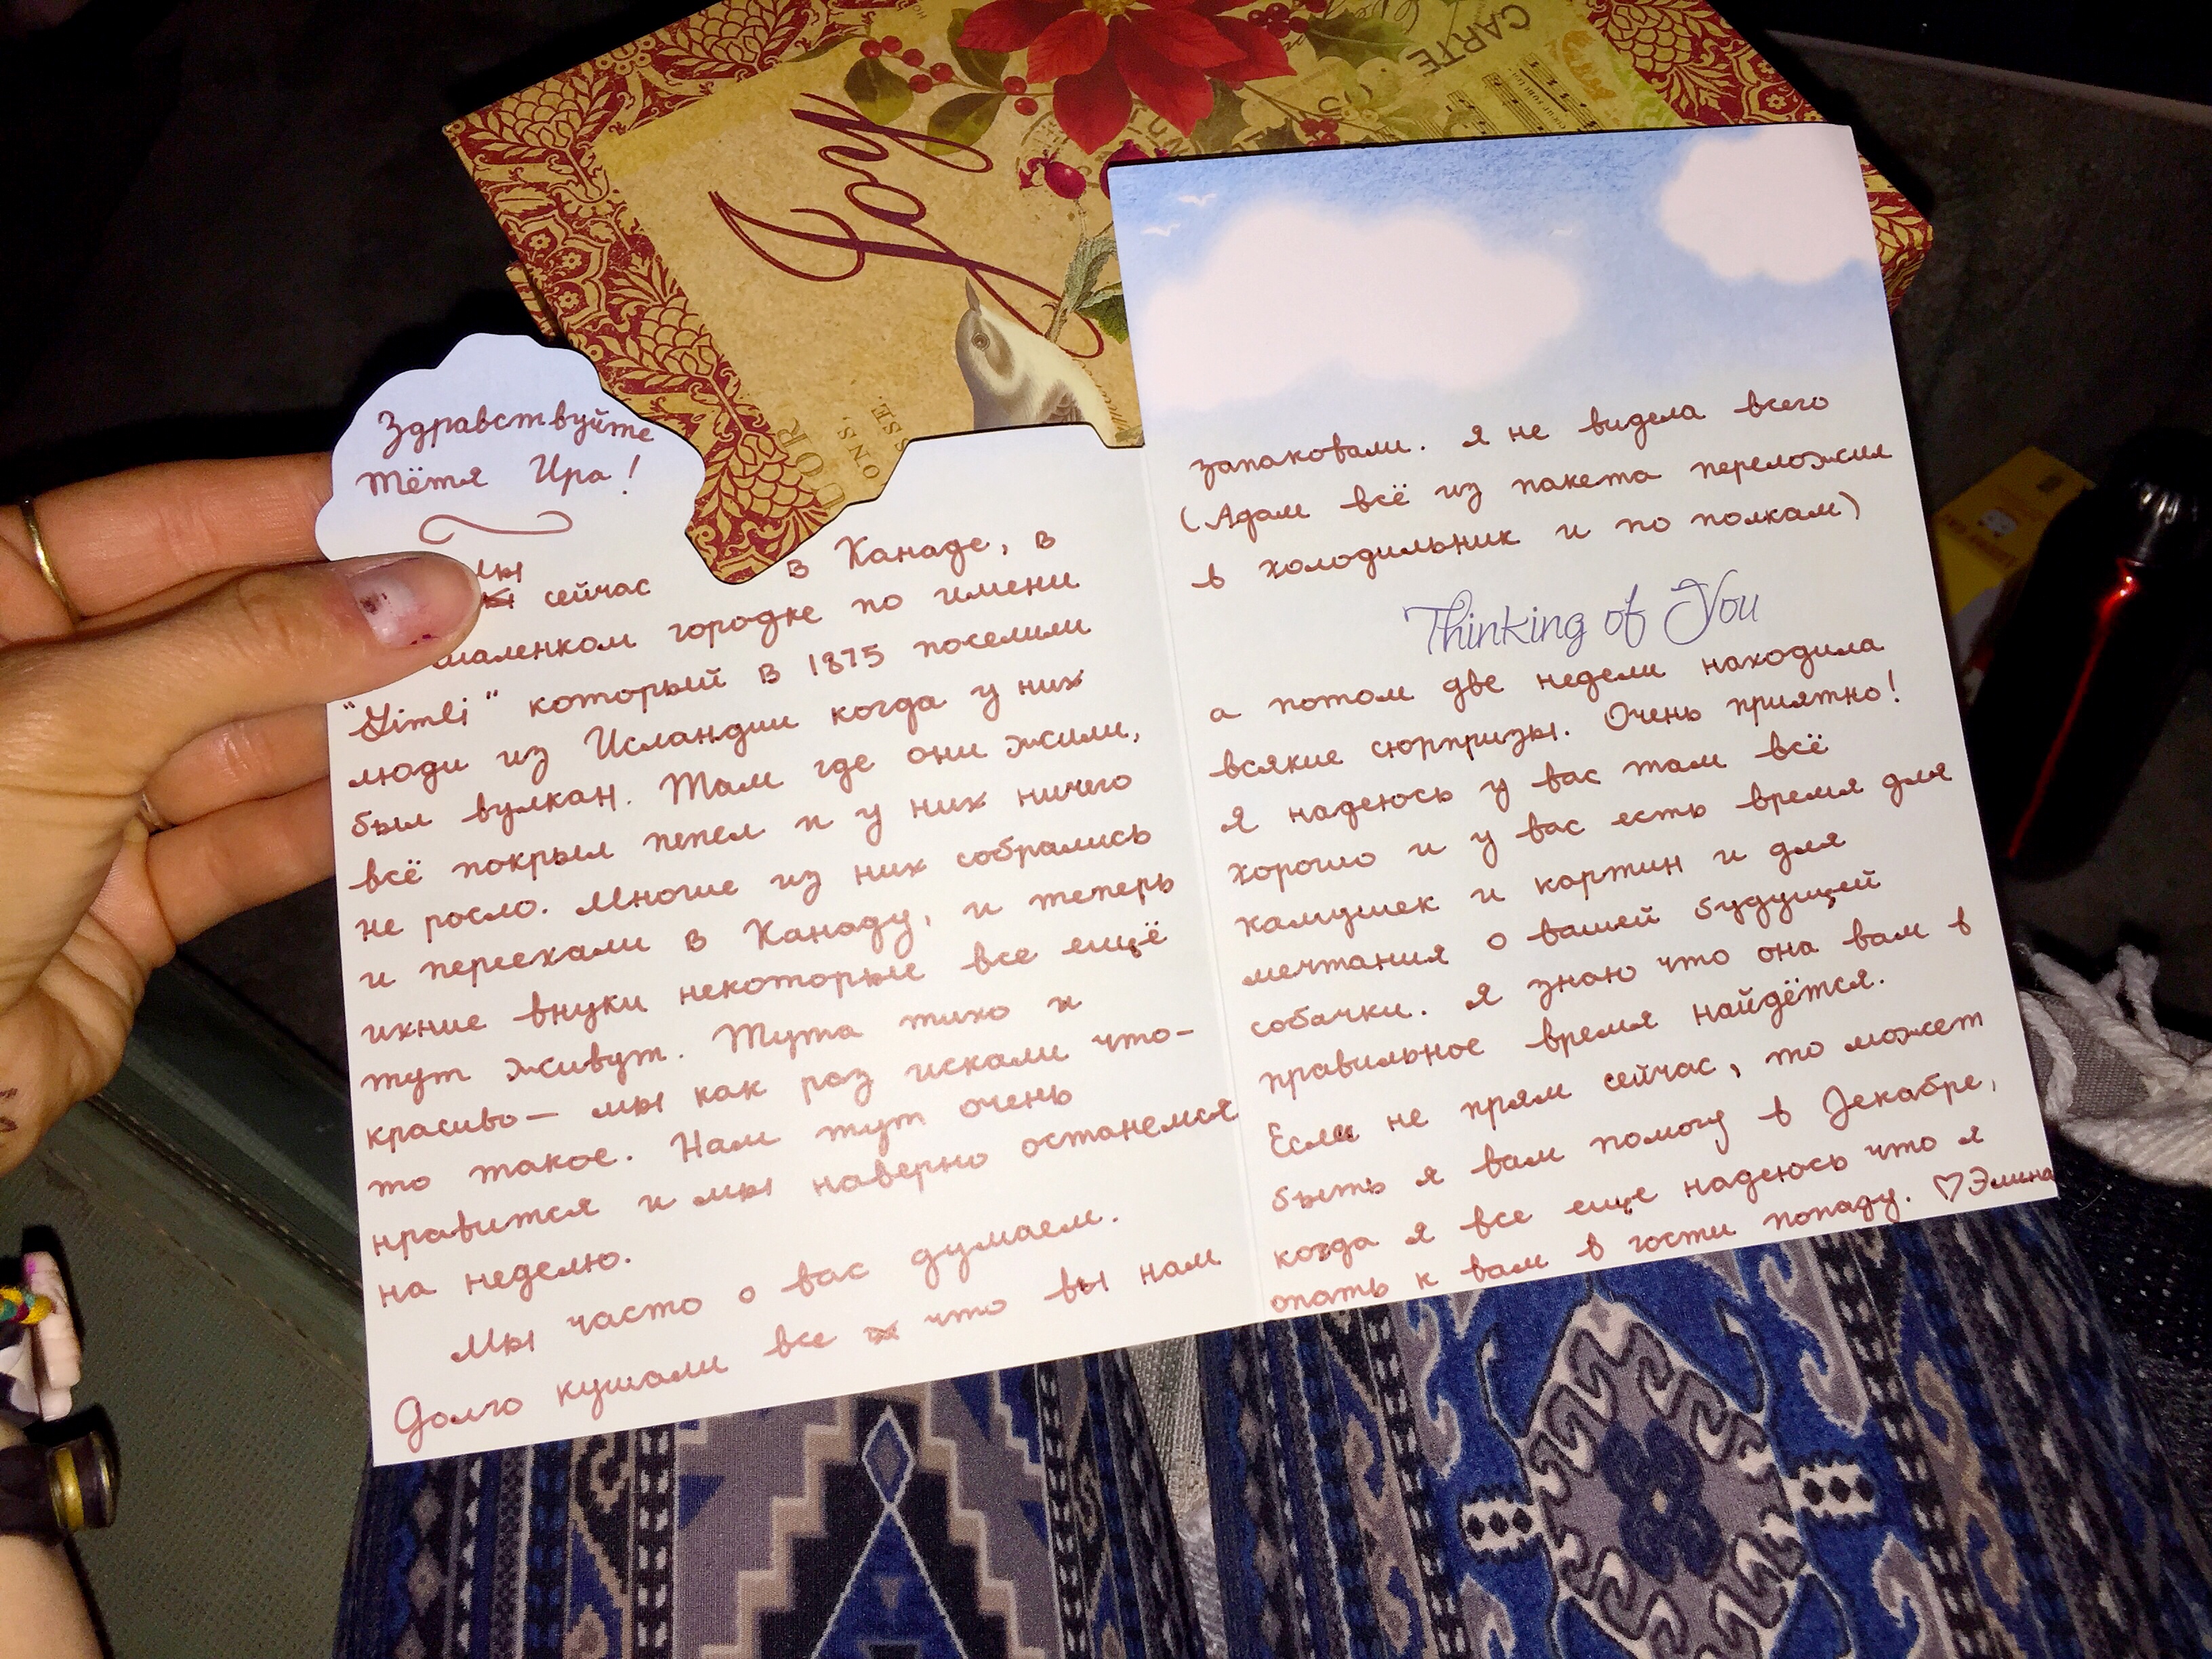 Joy
CARTE
Здравствуйте
тётя Ира!
мы
сейчас в Канаде, в
маленком городке по имени
"Gimli" который в 1875 поселили
люди из Исландии когда у них
был вулкан. Там где они жили,
всё покрыл пепел и у них ничего
не росло. Многие из них собрались
и переехали в Канаду, и теперь
ихние внуки некоторые все ещё
тут живут. Тута тихо и
красиво — мы как раз искали что-
то такое. Нам тут очень
нравится и мы наверно останемся
на неделю.
Мы часто о вас думаем.
Долго кушали все что вы нам
запаковали. Я не видела всего
(Адам всё из пакета переложил
в холодильник и по полкам)
Thinking of You
а потом две недели находила
всякие сюрпризы. Очень приятно!
Я надеюсь у вас там всё
хорошо и у вас есть время для
камушек и картин и для
мечтания о вашей будущей
собачки. Я знаю что она вам в
правильное время найдётся.
Если не прям сейчас, то может
быть я вам помогу в Декабре,
когда я все еще надеюсь что я
опать к вам в гости попаду. ♡Элина